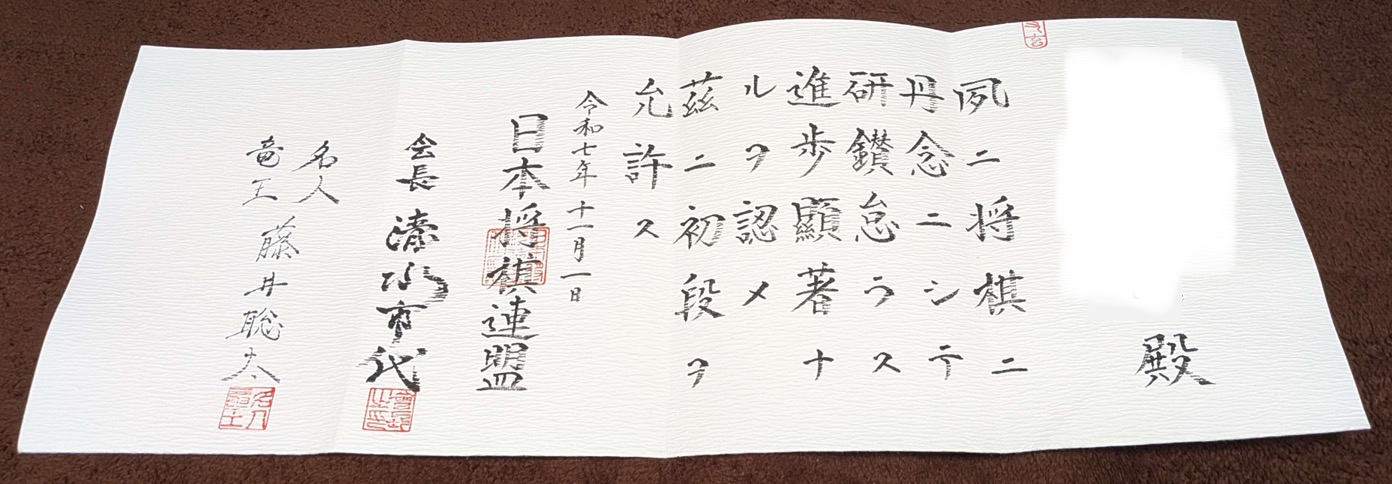 殿
夙ニ将棋ニ
丹念ニシテ
研鑽怠ラス
進歩顯著ナ
ルヲ認メ
茲ニ初段ヲ
允許ス
令和七年十一月一日
日本将棋連盟
会長 清水市代
名人
竜王 藤井聡太